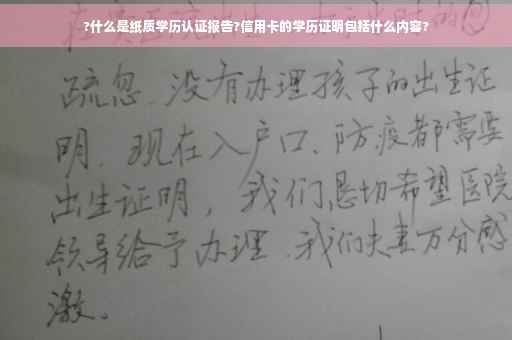 ?什么是纸质学历认证报告?信用卡的学历证明包括什么内容?
疏忽.没有办理孩子的出生证
明.现在入户口、防疫都需要
出生证明，我们恳切希望医院
领导给予办理.我们夫妻万分感
激。